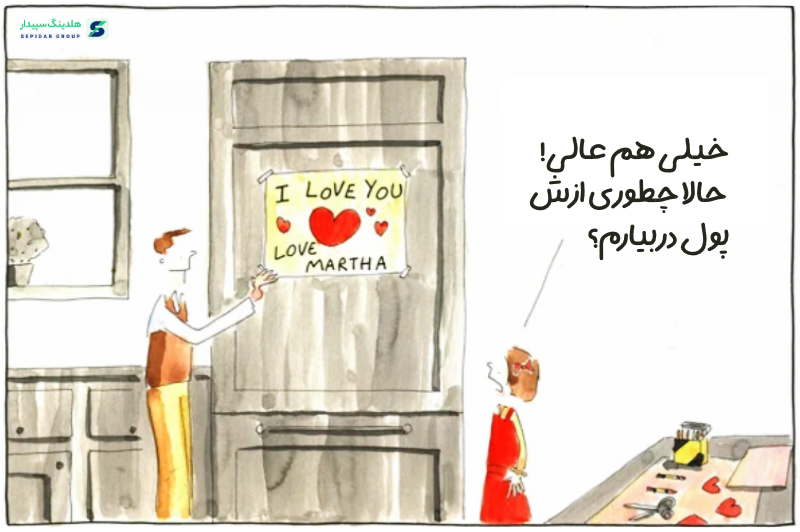 هلدینگ سپیدار
SEPIDAR GROUP
I LOVE YOU
LOVE
MARTHA
خیلی هم عالی!
حالا چطوری ازش
پول دربیارم؟